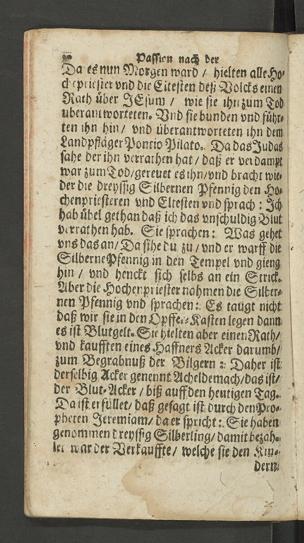 Passion nach der
Da es nun Morgen ward / hielten alle Ho-
chepriester und die Eltesten deß Volcks einen
Rath über JEsum / wie sie ihn zum Tod
uberantworteten. Und sie bunden und führ-
ten ihn hin / und überantworteten ihn dem
Landpfläger Pontio Pilato. Da das Judas
sahe der ihn verrathen hat / daß er verdampt
war zum Tod / gereuet es ihn / und bracht wie-
der die dreyssig Silbernen Pfennig den Ho-
chenpriesteren und Eltesten und sprach: Ich
hab übel gethan daß ich das unschuldig Blut
verrathen hab. Sie sprachen: Was gehet
uns das an / Da sihe du zu / und er warff die
Silberne Pfennig in den Tempel und gieng
hin / und henckt sich selbs an ein Strick.
Aber die Hochenpriester nahmen die Silber-
nen Pfennig und sprachen: Es taugt nicht
daß wir sie in den Opffer-Kasten legen dann
es ist Blutgelt. Sie hielten aber einen Rath /
und kaufften eines Haffners Acker darumb /
zum Begrabnuß der Bilgern: Daher ist
derselbig Acker genennt Acheldemach / das ist /
der Blut-Acker / biß auff den heutigen Tag.
Da ist erfüllet / daß gesagt ist durch den Pro-
pheten Jeremiam / da er spricht: Sie haben
genommen dreyssig Silberling / damit bezah-
let war der Verkauffte / welche sie den Kin-
dern